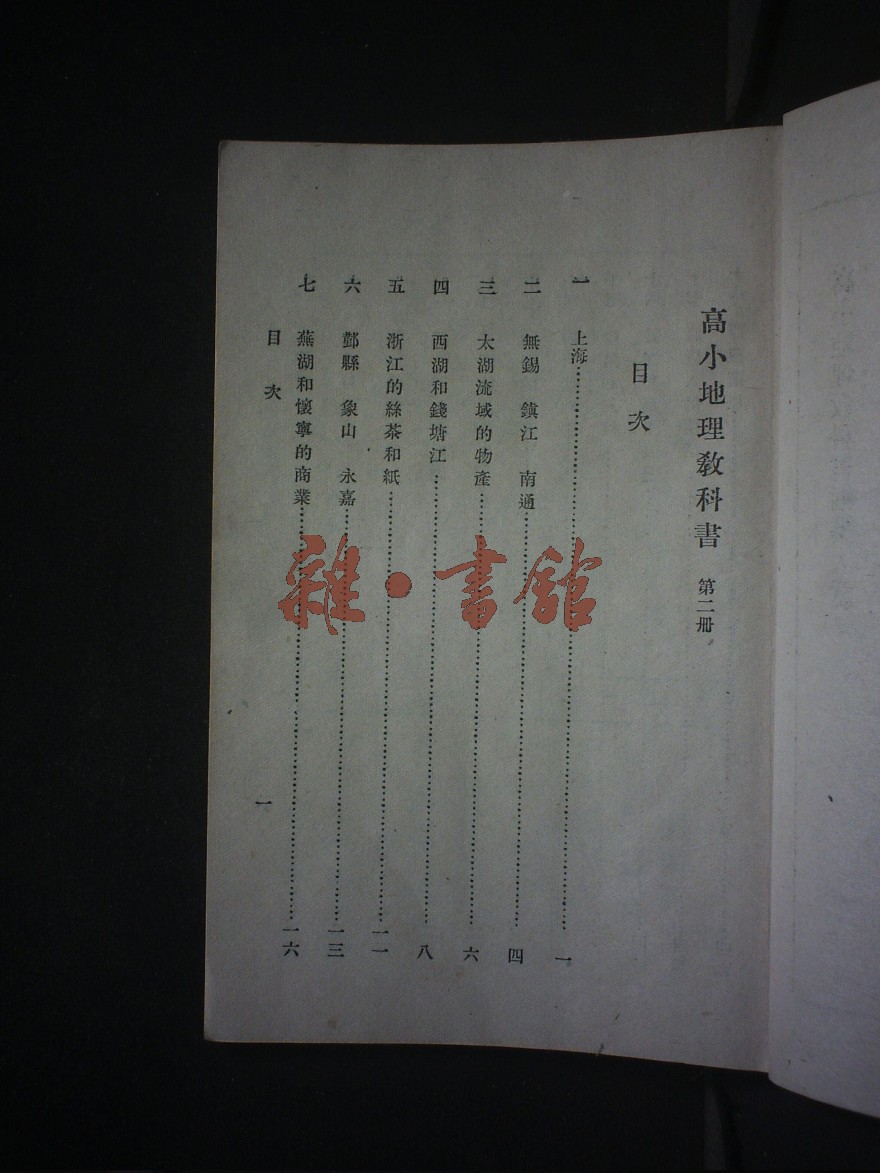 高小地理教科書 第二冊
目次
一 上海……一
二 無錫 鎮江 南通……四
三 太湖流域的物產……六
四 西湖和錢塘江……八
五 浙江的絲茶和紙……一一
六 鄞縣 象山 永嘉……一三
七 蕪湖和懷寧的商業……一六
目次 一
雜·書館